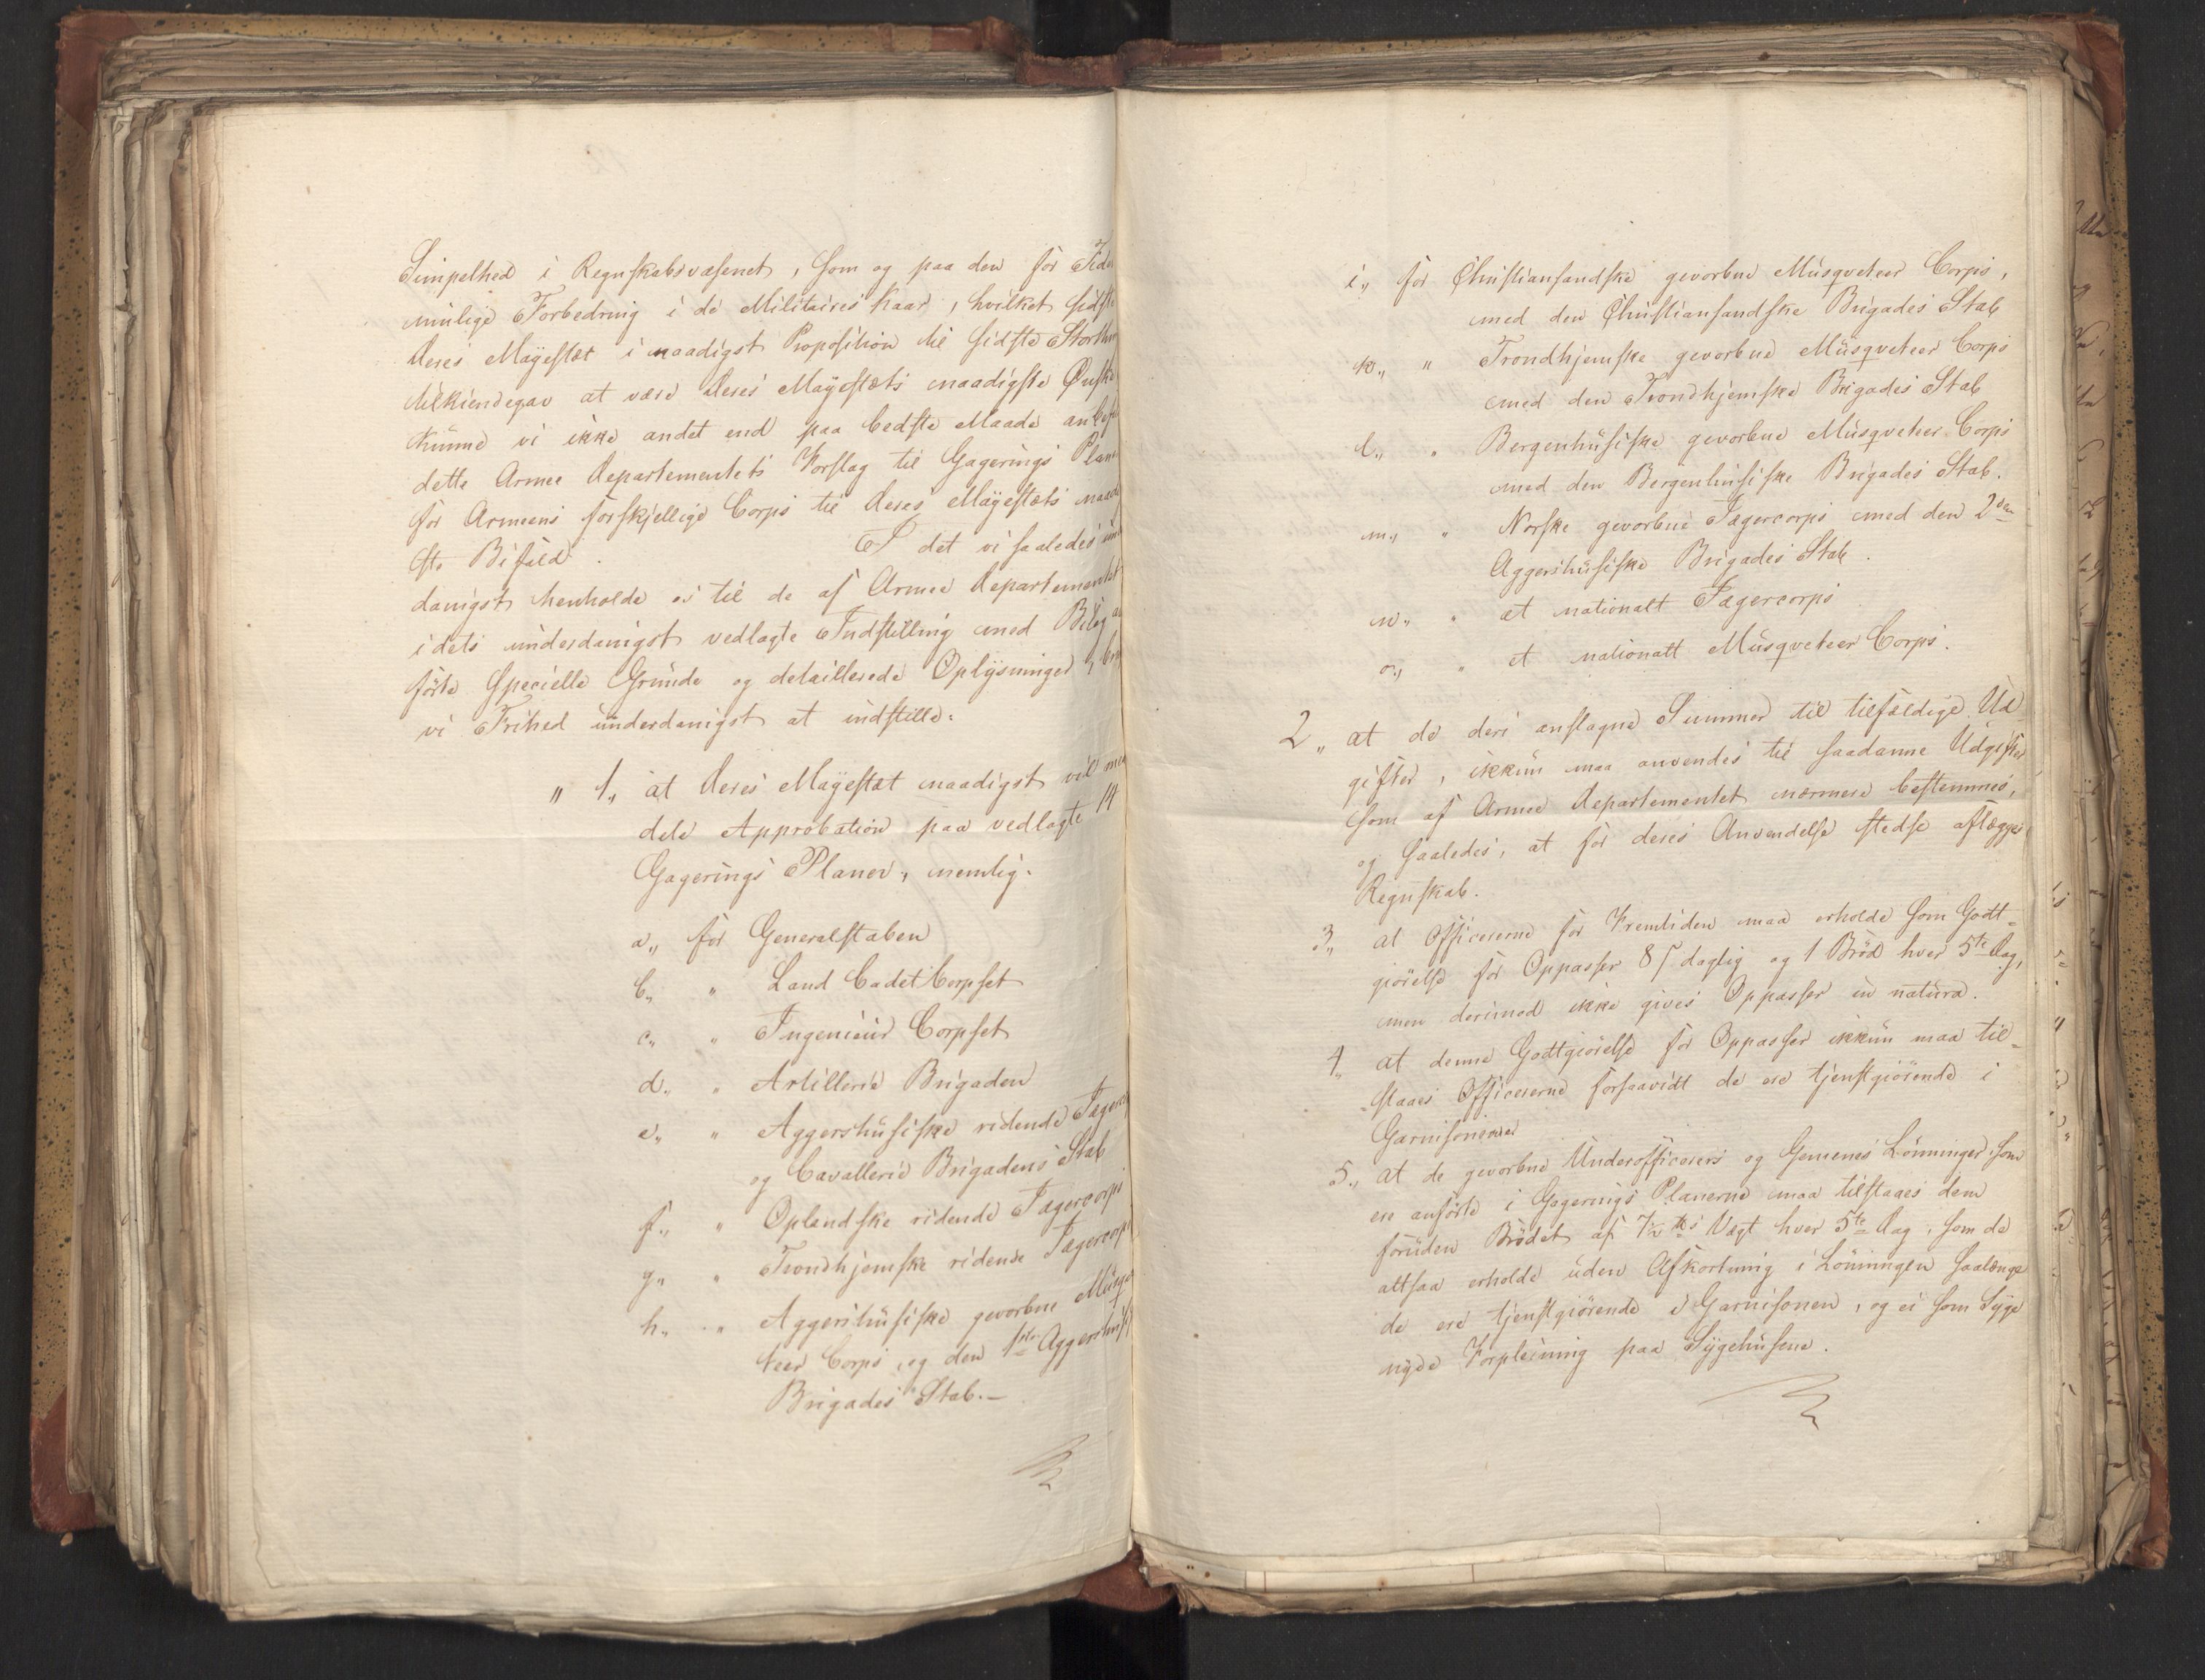 Simpelhed i Regnskabsvæsenet, som og paa den for Tiden
muulige Forbedring i de Militaires Kaar, hvilket sidste
Deres Mayestæt i naadigst Proposition til sidste Storthing
tilkiendegav at være Deres Mayestæts naadigste Ønske
kunne vi ikke andet end paa bedste Maade anbefale
dette Armee Departementets Forslag til Gagerings Planer
for Armeens forskjellige Corps til Deres Mayestæts naadig
ste Bifald. I det vi saaledes under
danigst henholde os til de af Armee Departementet
i dets underdanigst vedlagte Indstilling med Bilag an
førte specielle Grunde og detaillerede Oplysninger,
vi Frihed underdanigst at indstille:
" 1,, at Deres Mayestæt naadigst vil med
dele Approbation paa vedlagte 14
Gagerings Planer, nemlig:
a,, for Generalstaben
b,, " Land Cadet Corpset
c,, " Ingenieur Corpset
d,, " Artillerie Brigaden
e,, " Aggershusiske ridende Jægercorps
og Cavallerie Brigadens Stab
f,, " Oplandske ridende Jægercorps
g,, " Trondhjemske ridende Jægercorps
h,, " Aggershusiske gevorbne Musqve
teer Corps, og den 1ste Aggershusiske
Brigades Stab.—
i,, for Christiansandske gevorbne Musqveteer Corps,
med den Christiansandske Brigades Stab
k,, " Trondhjemske gevorbne Musqveteer Corps
med den Trondhjemske Brigades Stab
l,, " Bergenhusiske gevorbne Musqveteer Corps
med den Bergenhusiske Brigades Stab.
m,, " Norske gevorbne Jægercorps med den 2den
Aggershusiske Brigades Stab.
n,, " et nationalt Jægercorps
o,, " et nationalt Musqveteer Corps.
2,, at de deri anslagne Summer til tilfældige Ud
gifter, ikkun maa anvendes til saadanne Udgifter
som af Armee Departementet nærmere bestemmes,
og saaledes, at for deres Anvendelse stedse aflægges
Regnskab.
3,, at Officererne for Fremtiden maa erholde som Godt-
giørelse for Oppasser 8 ʃ daglig og 1 Brød hver 5te Dag,
men derimod ikke gives Oppasser in natura.
4,, at denne Godtgiørelse for Oppasser ikkun maa til-
staaes Officererne forsaavidt de ere tjenstgiørende i
Garnisonerne
5,, at de gevorbne Underofficerers og Gemenes Lønninger som
ere anførte i Gagerings Planerne maa tilstaaes dem
foruden Brødet af 7½ ℔s Vægt hver 5te Dag, som de
altsaa erholde uden Afkortning i Lønningen saalænge
de ere tjenstgiørende i Garnisonen, og ei som Syge
nyde Forpleining paa Sygehusene.